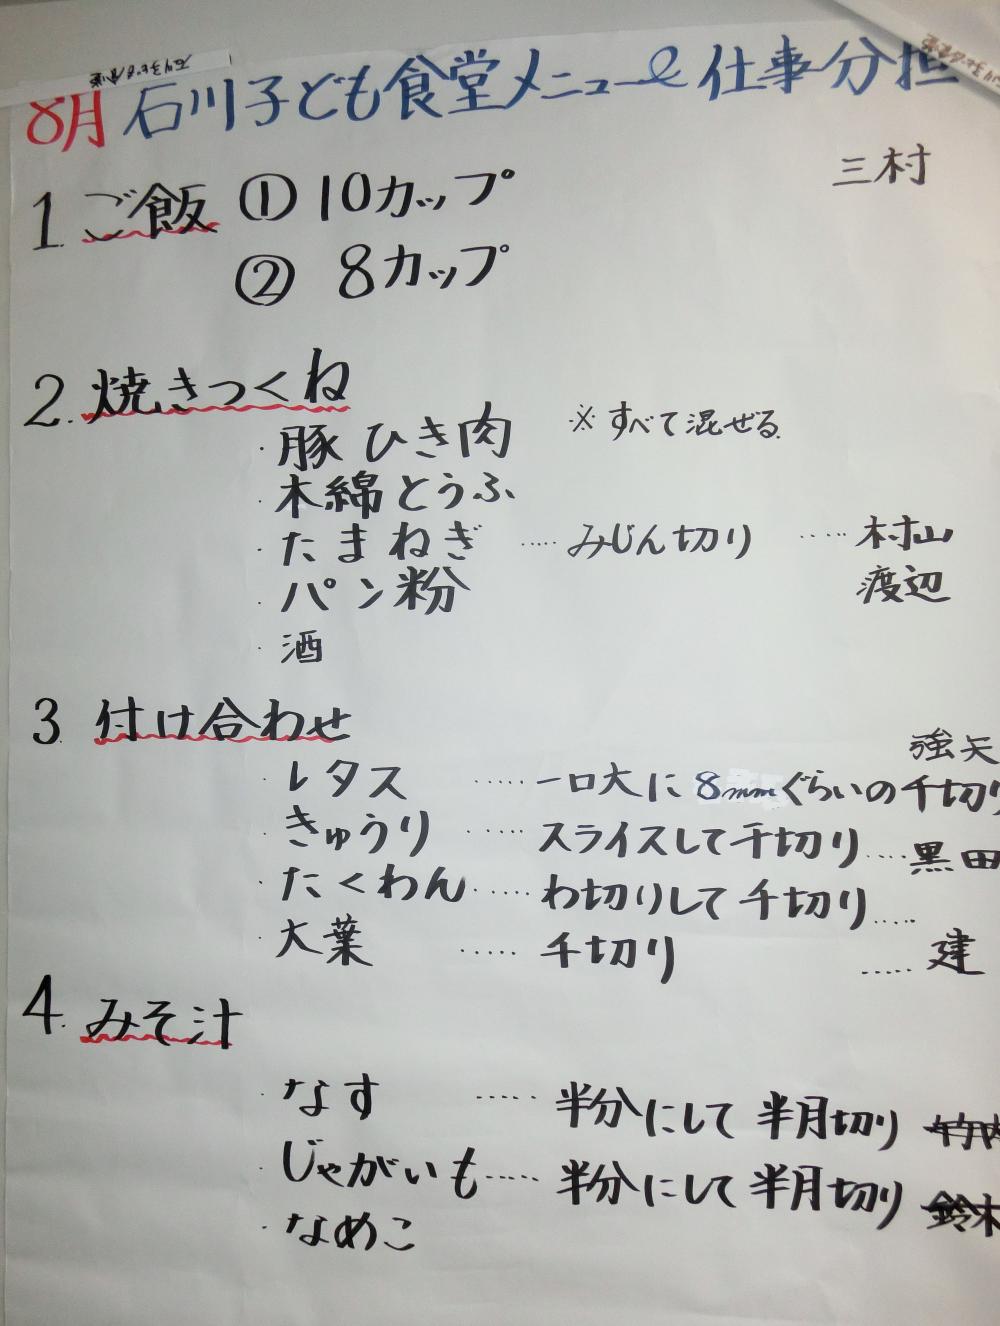 8月 石川子ども食堂メニュー&仕事分担
三村
1. ご飯 ① 10カップ
② 8カップ
2. 焼きつくね
・豚ひき肉 ※すべて混ぜる
・木綿とうふ
・たまねぎ ‥‥‥ みじん切り ‥‥‥ 村山
・パン粉 渡辺
・酒
3. 付け合わせ
強矢
・レタス ‥‥‥ 一口大に 8mmぐらいの千切り
・きゅうり ‥‥‥ スライスして千切り ‥‥‥ 黒田
・たくわん ‥‥‥ わ切りして千切り ‥‥‥
・大葉 ‥‥‥ 千切り ‥‥‥ 建
4. みそ汁
・なす ‥‥‥ 半分にして半月切り 竹内
・じゃがいも ‥‥‥ 半分にして半月切り 鈴木
・なめこ